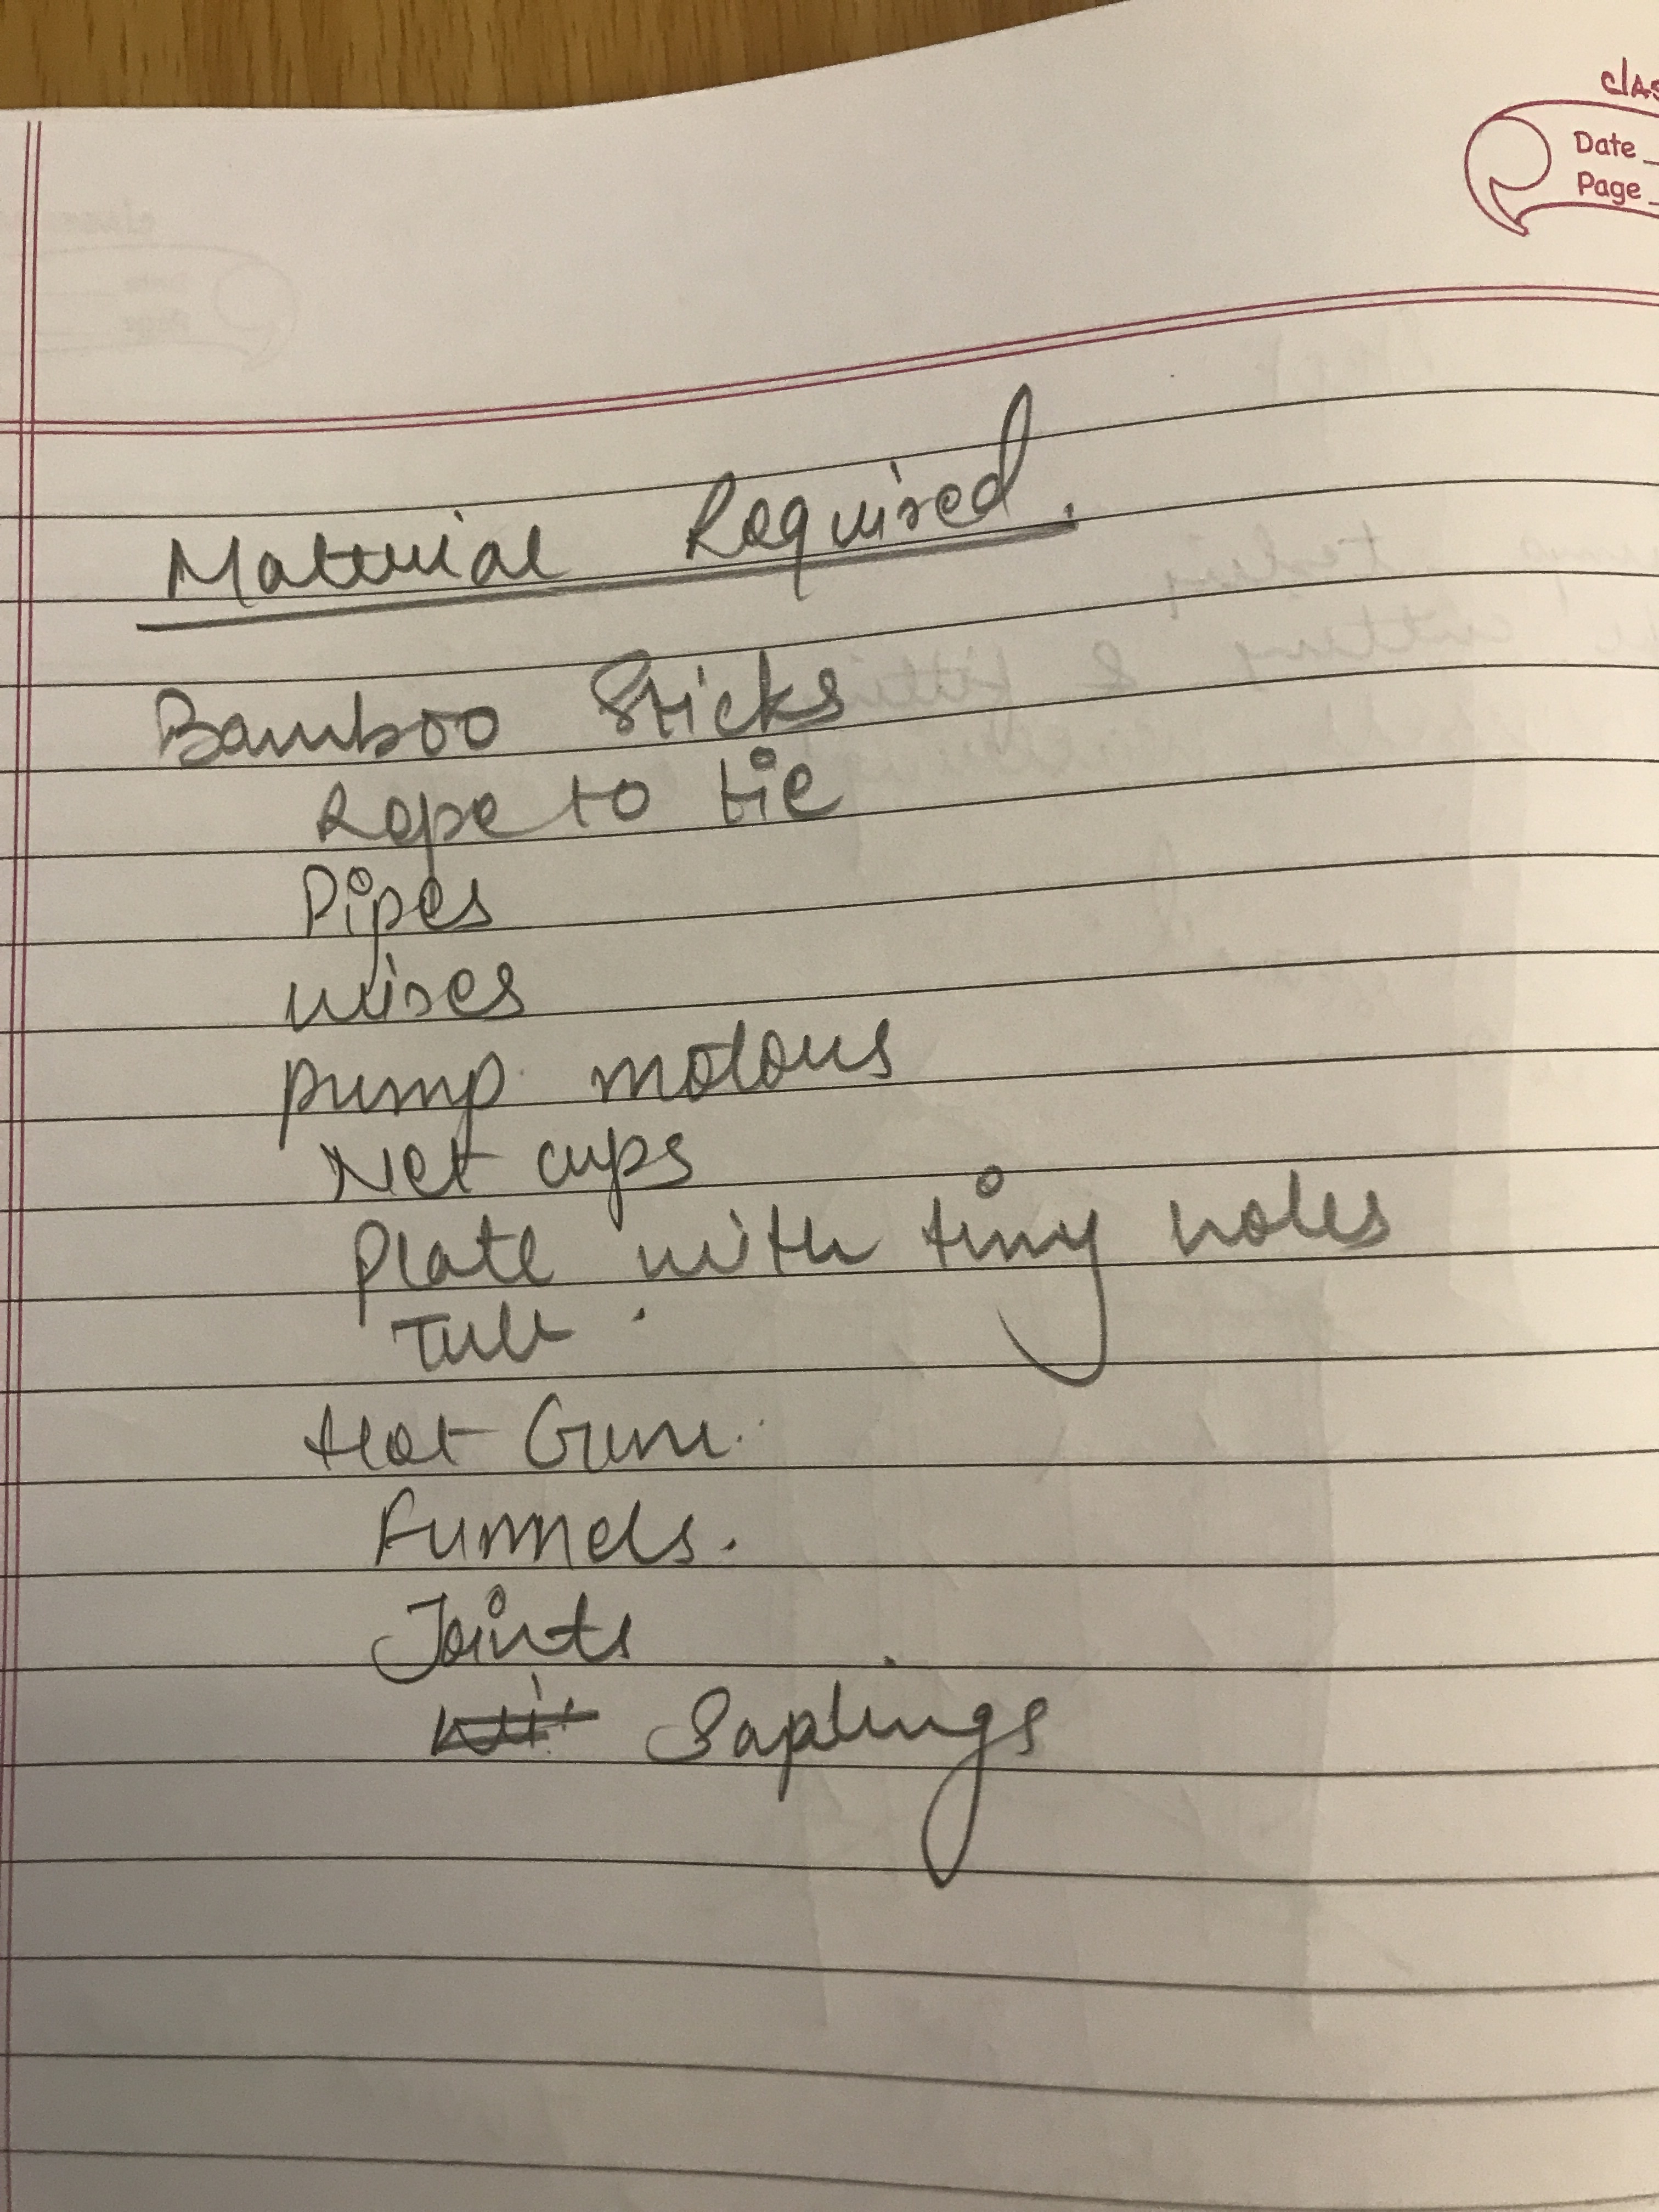 Date
Page
Material Required.
Bamboo Sticks
Rope to tie
Pipes
wires
pump motors
Net cups
Plate with tiny holes
Tub.
Hot Gum.
Funnels.
Joints
Saplings